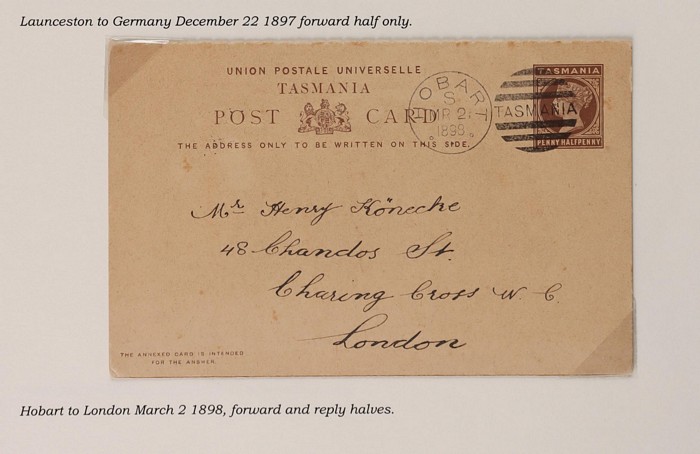 Launceston to Germany December 22 1897 forward half only.
UNION POSTALE UNIVERSELLE
TASMANIA
POST CARD
THE ADDRESS ONLY TO BE WRITTEN ON THIS SIDE.
HOBART
S
MR 2
1898
TASMANIA
TASMANIA
PENNY HALFPENNY
Mr Henry Könecke
48 Chandos St.
Charing Cross W. C.
London
THE ANNEXED CARD IS INTENDED
FOR THE ANSWER.
Hobart to London March 2 1898, forward and reply halves.